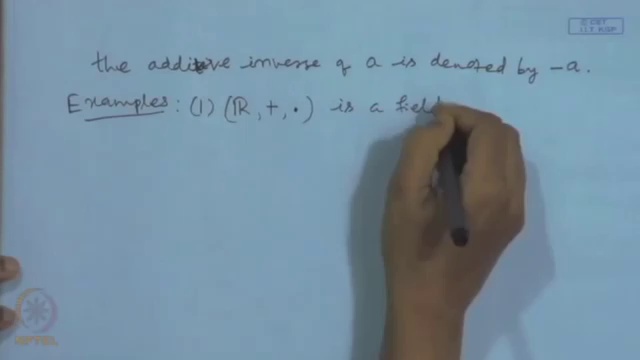 © CET
I.I.T. KGP
the additive inverse of a is denoted by -a.
Examples: (1) (ℝ, +, ·) is a field
NPTEL